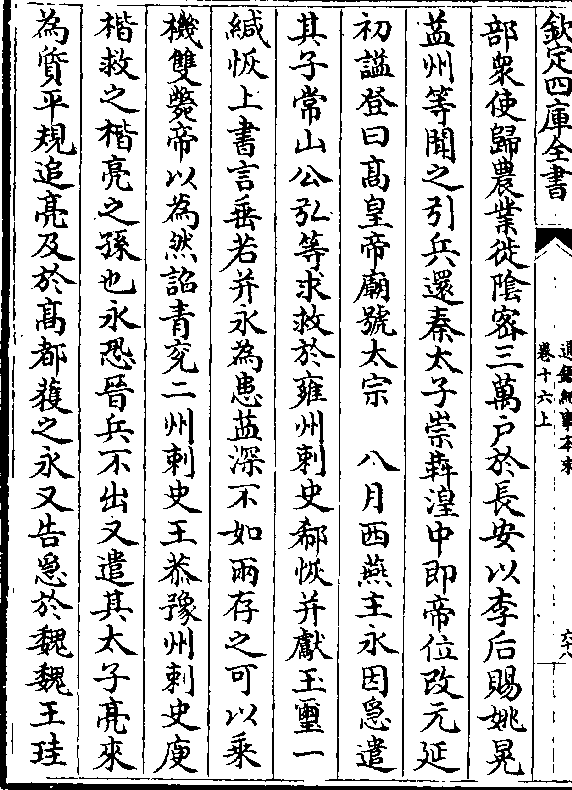 欽定四庫全書
通鑑紀事本末
卷十六上
六十八
部衆使歸農業徙陰密三萬户於長安以李后賜姚晃
益州等聞之引兵還秦太子崇犇湟中即帝位改元延
初謚登曰髙皇帝廟號太宗　八月西燕主永因急遣
其子常山公弘等求救於雍州刺史郗恢并獻玉璽一
緘恢上書言垂若并永為患益深不如兩存之可以乗
機雙斃帝以為然詔青兖二州刺史王恭豫州刺史庾
楷救之楷亮之孫也永恐晉兵不出又遣其太子亮來
為質平規追亮及於髙都獲之永又告急於魏魏王珪